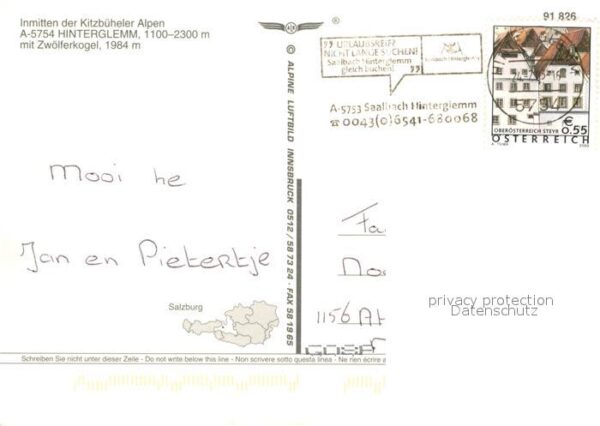 Inmitten der Kitzbüheler Alpen
A-5754 HINTERGLEMM, 1100–2300 m
mit Zwölferkogel, 1984 m
Mooi he
Jan en Pietertje
Salzburg
© ALPINE LUFTBILD INNSBRUCK 0512 / 58 73 24 · FAX 58 19 65
91 826
" URLAUBSREIF?
NICHT LANGE SUCHEN!
Saalbach Hinterglemm
gleich buchen! "
Saalbach Hinterglemm
A-5753 Saalbach Hinterglemm
☎ 0043(0)6541-680068
€ 0.55
OBERÖSTERREICH STEYR
ÖSTERREICH
Fa
1156 AH
privacy protection
Datenschutz
Schreiben Sie nicht unter dieser Zeile - Do not write below this line - Non scrivere sotto questa linea - Ne rien écrire a